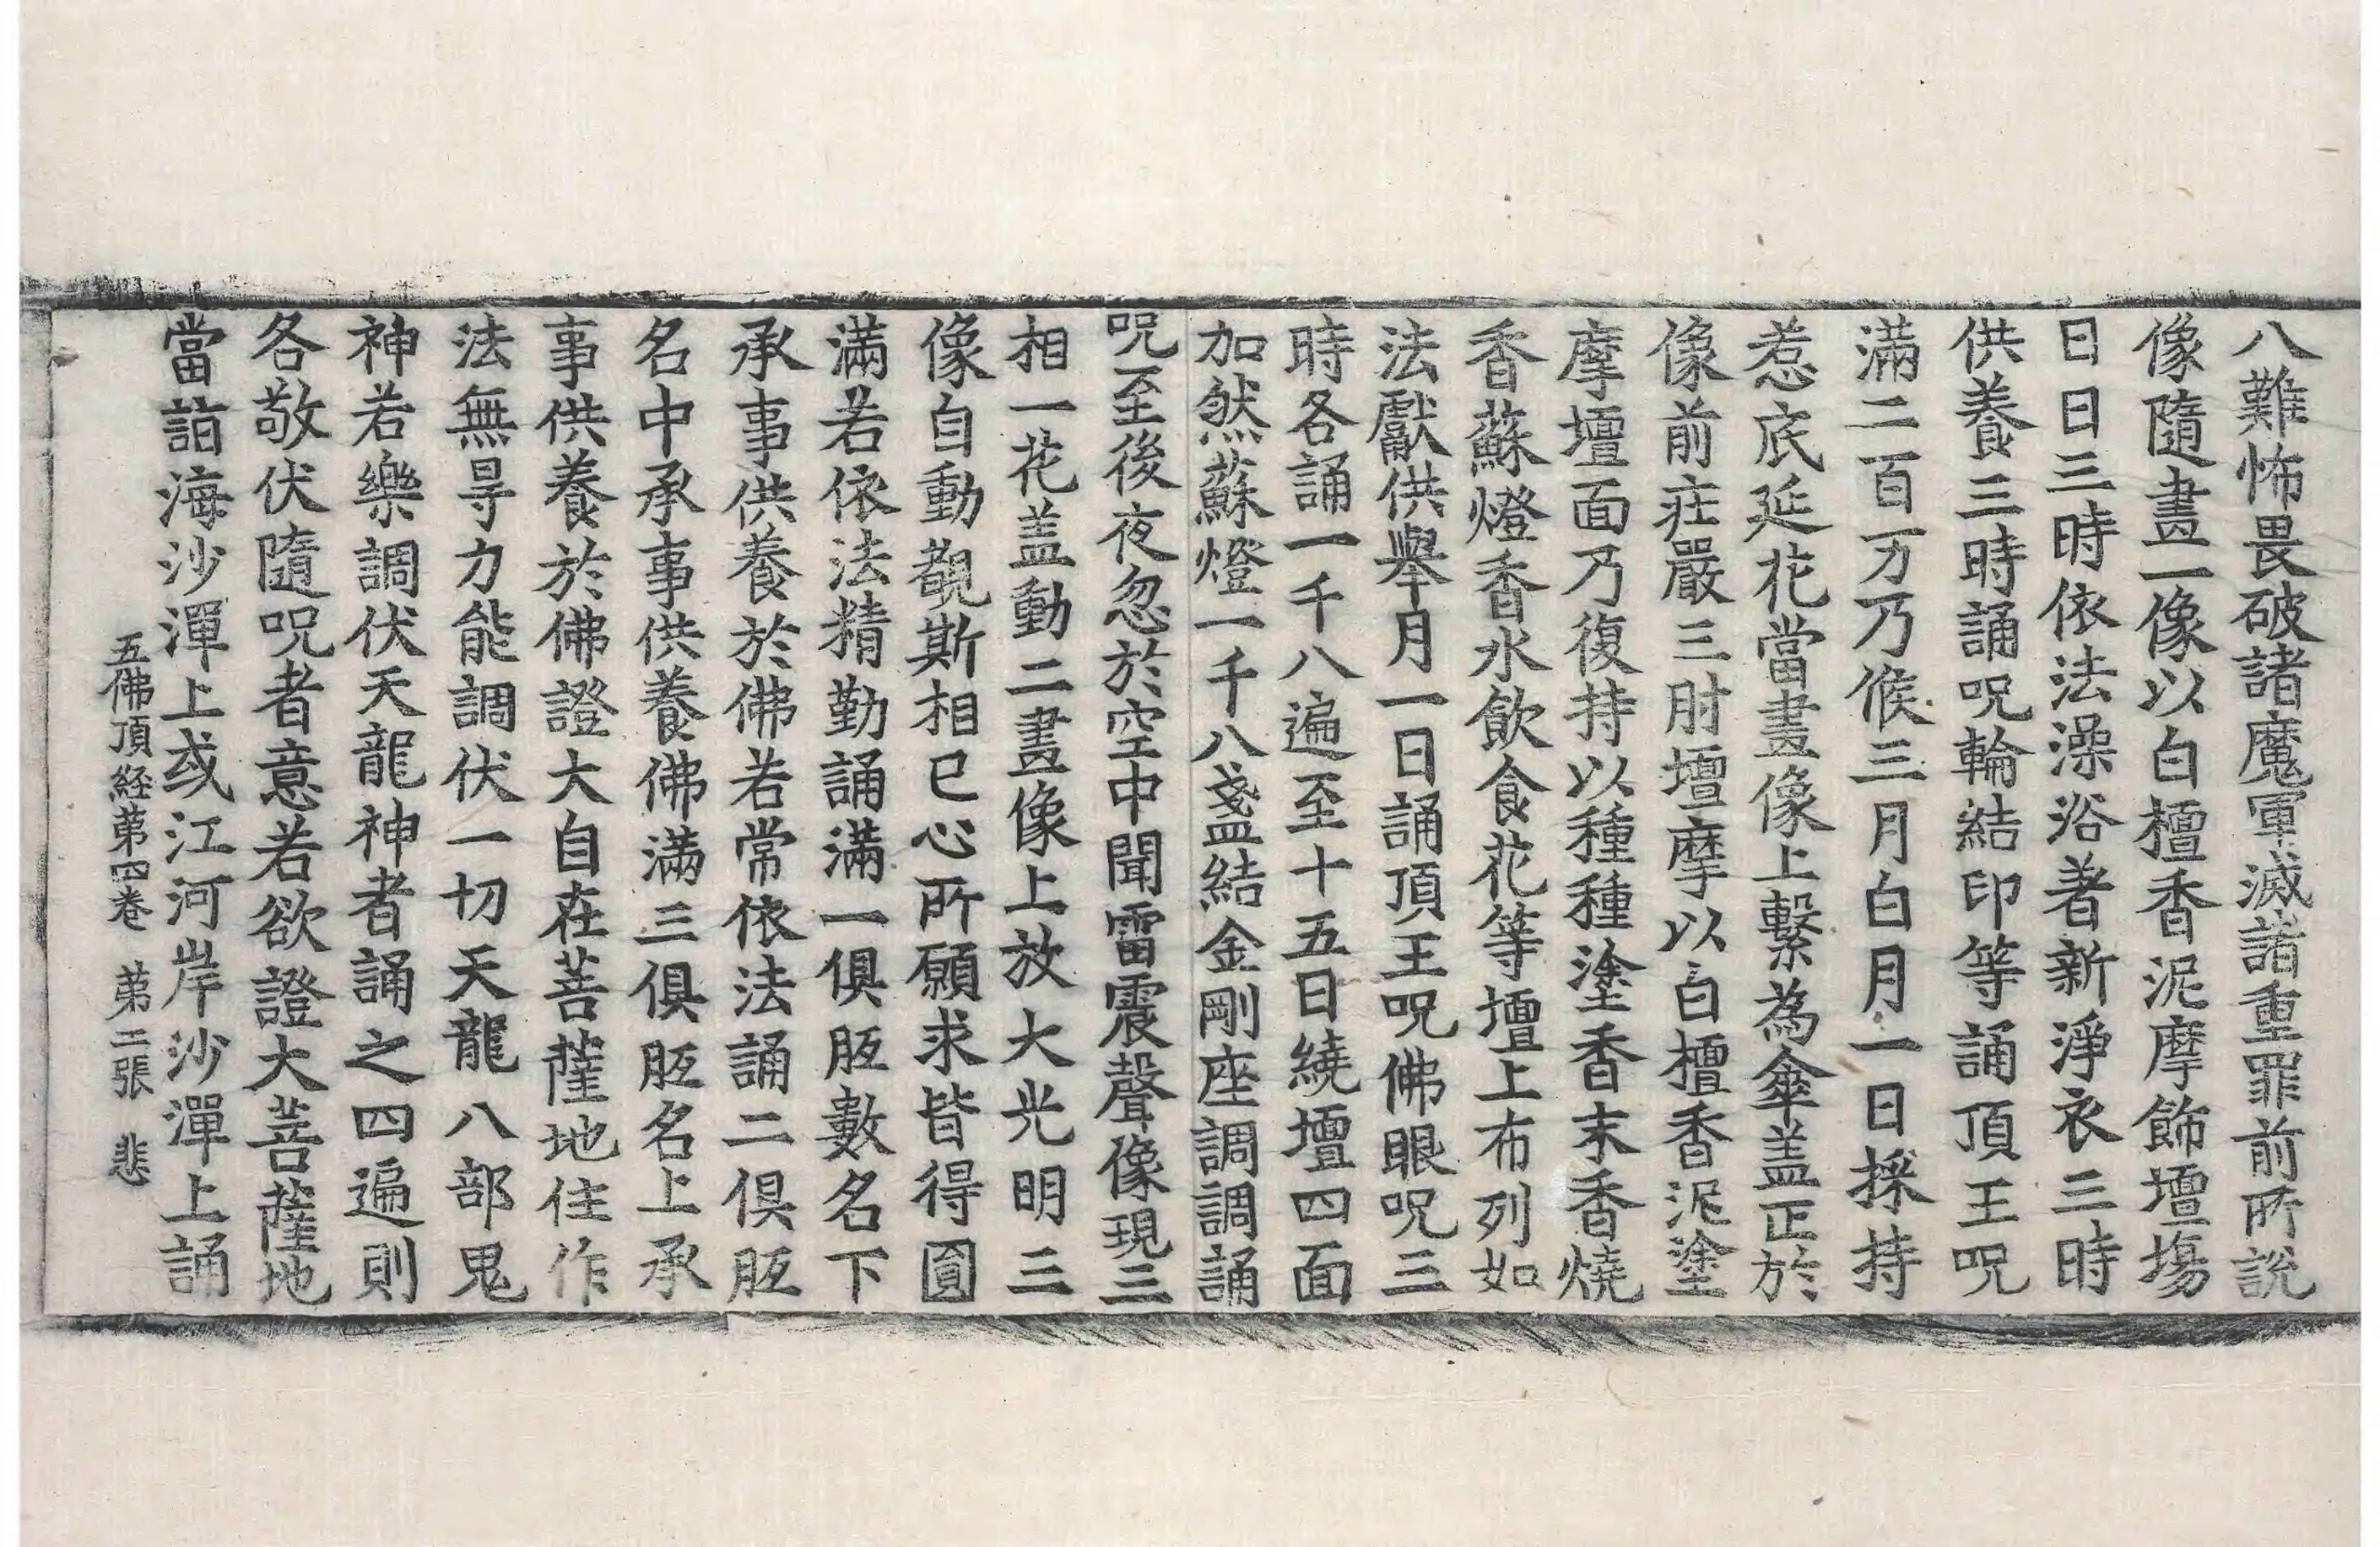 八難怖畏破諸魔軍滅諸重罪前所說
像隨畫一像以白檀香泥摩飾壇場
日日三時依法澡浴著新淨衣三時
供養三時誦呪輪結印等誦頂王呪
滿二百万乃候三月白月一日採持
惹底延花當畫像上繫為傘盖正於
像前莊嚴三肘壇摩以白檀香泥塗
摩壇面乃復持以種種塗香末香燒
香蘇燈香水飲食花等壇上布列如
法獻供舉月一日誦頂王呪佛眼呪三
時各誦一千八遍至十五日繞壇四面
加然蘇燈一千八盞結金剛座調調誦
呪至後夜忽於空中聞雷震聲像現三
相一花盖動二畫像上放大光明三
像自動覩斯相已心所願求皆得圓
滿若依法精勤誦滿一俱胝數名下
承事供養於佛若常依法誦二俱胝
名中承事供養佛滿三俱胝名上承
事供養於佛證大自在菩薩地住作
法無㝵力能調伏一切天龍八部鬼
神若樂調伏天龍神者誦之四遍則
各敬伏隨呪者意若欲證大菩薩地
當詣海沙潬上或江河岸沙潬上誦
五佛頂経苐四卷 苐二張 悲